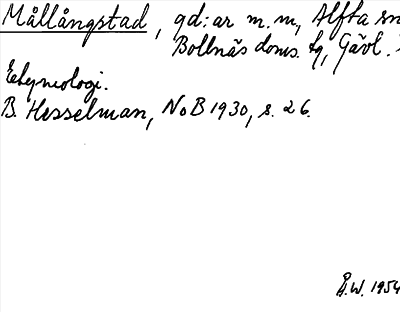 Mållångstad, gd:ar m.m, Alfta sn
Bollnäs doms. tg, Gävl.
Etymologi.
B. Hesselman, NoB 1930, s. 26.
Å.W. 1954